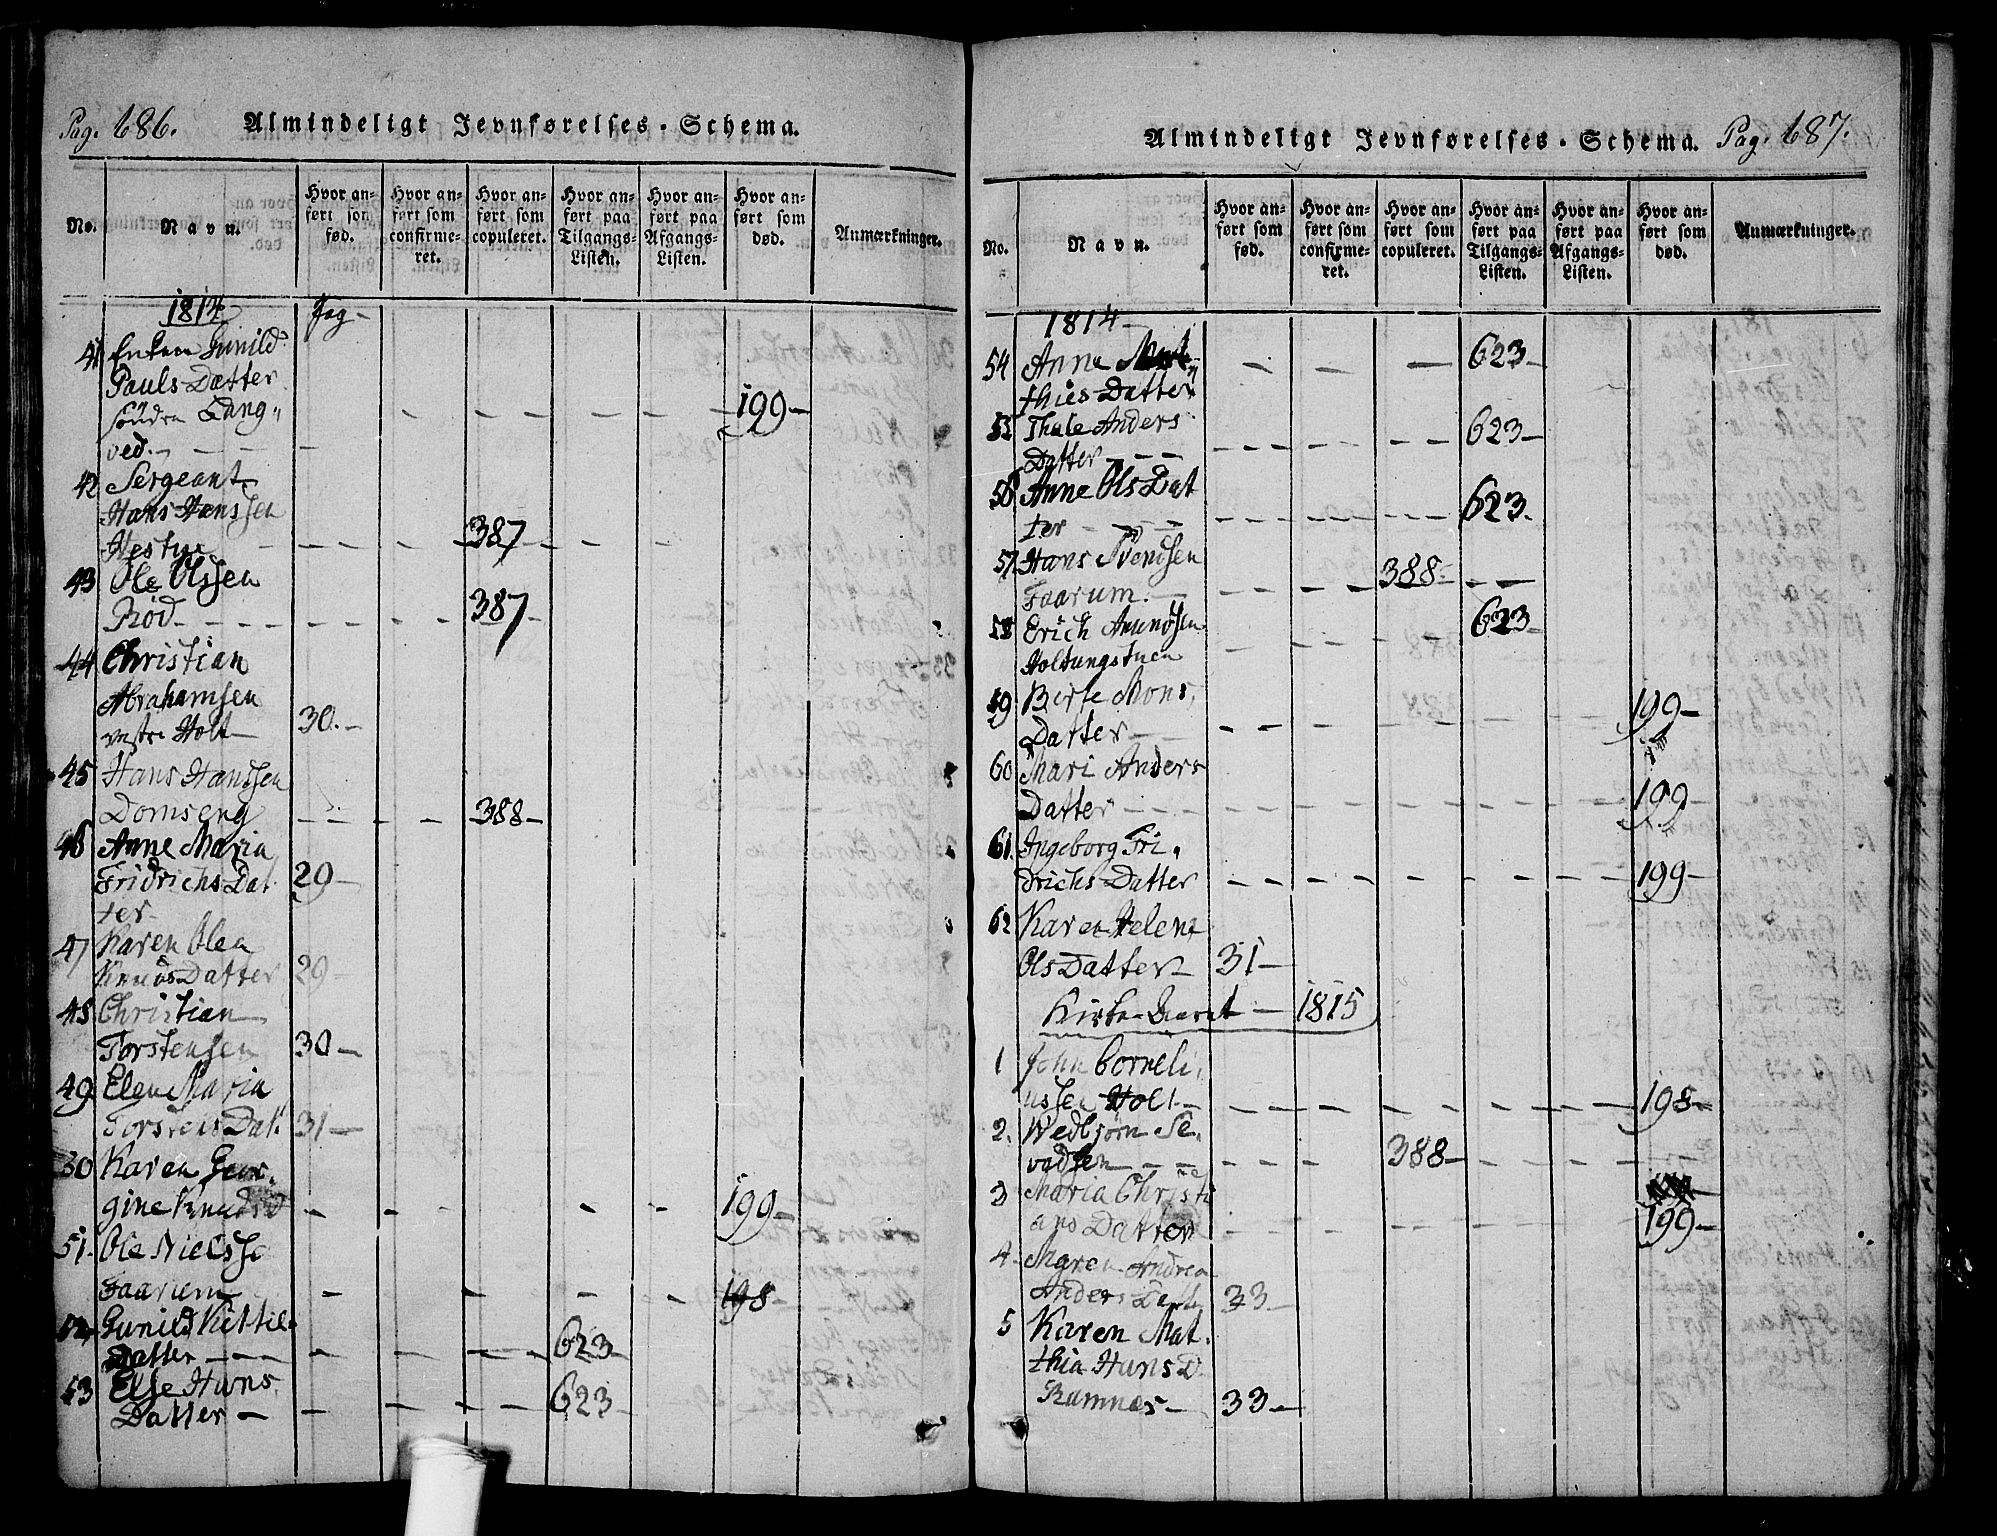 Pag. 686. Almindeligt Jevnførelses-Schema.
No. Navn. Hvor anført som fød. Hvor anført som confirmeret. Hvor anført som copuleret. Hvor anført paa Tilgangs-Listen. Hvor anført paa Afgangs-Listen. Hvor anført som død. Anmærkninger.
1814 Pag
41 Enken Gunild
Pauls Datter
söndre Lang„
ved. 199
42 Sergeant
Hans Hanssen
387
43 Ole Olssen
Röd 387
44 Christian
Abrahamsen
vestre Holt 30.
45 Hans Hanssen
Domseng 388
46 Anne Maria
Fridrichs Dat
ter 29
47 Karen Olea
Knuds Datter 29
48 Christian
Torstensen 30
49 Elene Maria
Torstens Dat. 31
50 Karen Geor-
gine Knuds D 199
51. Ole Nielsse
Faarum 198
52 Gunild Kittils
Datter 623
53 Else Hans
Datter 623
Almindeligt Jevnførelses-Schema. Pag. 687.
No. Navn. Hvor anført som fød. Hvor anført som confirmeret. Hvor anført som copuleret. Hvor anført paa Tilgangs-Listen. Hvor anført paa Afgangs-Listen. Hvor anført som død. Anmærkninger.
1814
54 Anne Mat-
thies Datter 623
55 Thale Anders
Datter 623
56 Anne Ols Dat
ter 623
57 Hans Svendsen
Faarum. 388
58 Erich Amundsen
Holtungstuen 623
59 Berte Mons
Datter 199
60 Mari Anders
Datter 199
61. Ingeborg Fri-
drichs Datter 199
62 Karen Helene
Ols Datter 31
Kirke Aaret 1815
1 John Corneli-
ussen Holt 198
2. Wedbjörn Se-
vadsen 388
3 Maria Christi
ans Datter 199
4 Maren Andrea
Anders Datter 33
5 Karen Mat-
thia Hans D.
Ramnæs 33